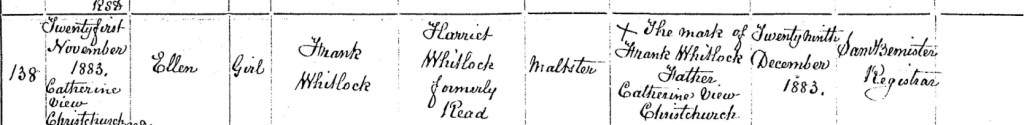 1883
138
Twenty first
November
1883.
Catherine
View
Christchurch
Ellen
Girl
Frank
Whitlock
Harriet
Whitlock
formerly
Read
Maltster
X The mark of
Frank Whitlock
Father
Catherine View
Christchurch
Twenty ninth
December
1883.
Sam Bemister
Registrar